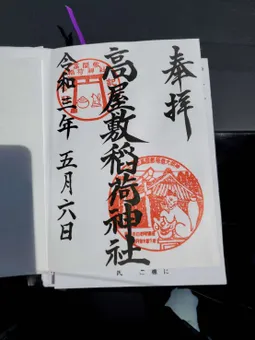 奉拝
高屋敷稲荷神社
令和三年 五月六日